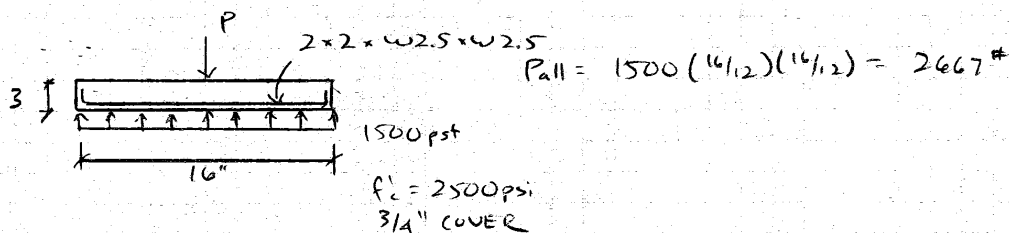 P
2x2xW2.5xW2.5
Pall = 1500 (16/12)(16/12) = 2667#
3
1500 psf
16"
f'c = 2500psi
3/4" COVER